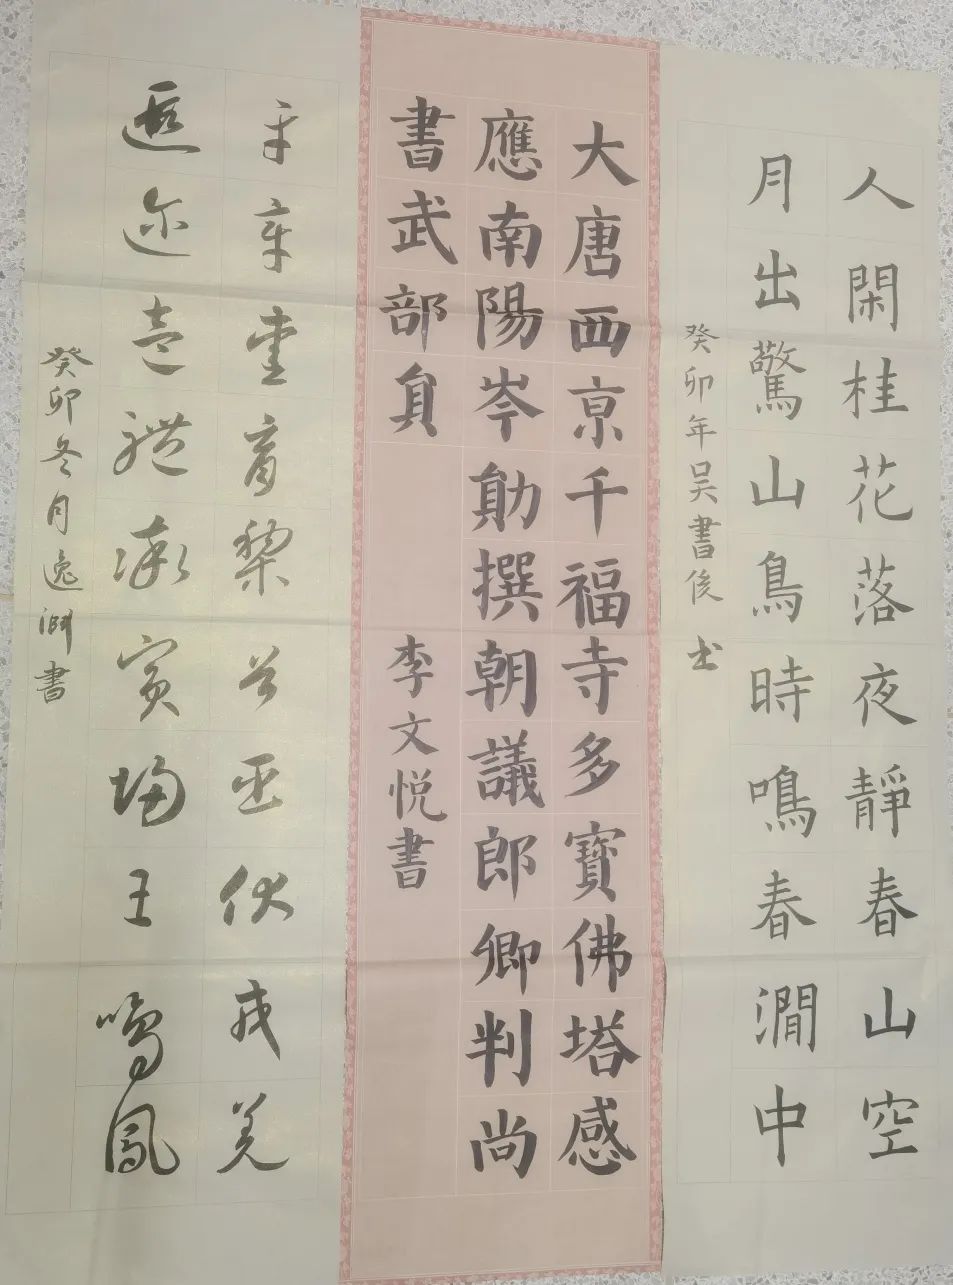 人閑桂花落夜靜春山空
月出驚山鳥時鳴春澗中
癸卯年吴書书
大唐西亰千福寺多寶佛塔感
應南陽岑勛撰朝議郎卿判尚
書武部員
李文悦書
平章愛育黎首臣伏戎羌
遐迩壹體率賓歸王鳴鳳
癸卯冬月逸書